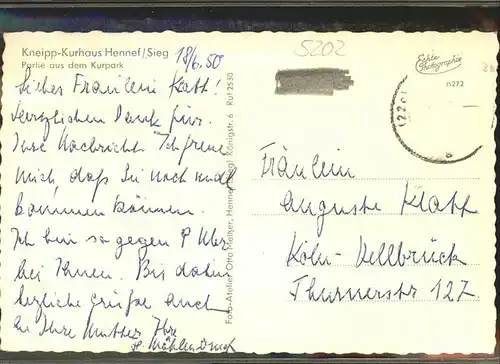 Kneipp-Kurhaus Hennef/Sieg
Partie aus dem Kurpark
18/6.50
5202
Echte
Photographie
n272
Liebes Fräulein Kath!
Herzlichen Dank für
Ihre Nachricht. Ich freue
mich, daß Sie noch mal
kommen können.
Ich bin so gegen Uhr
bei Ihnen. Bis dahin
herzliche Grüße auch
an Ihre Mutter Ihre
Foto-Atelier Otto Meltser, Hennef (Sieg) Königstr. 6 Ruf 2530
Fräulein
Auguste Klatt
Köln-Dellbrück
Thurnerstr 127